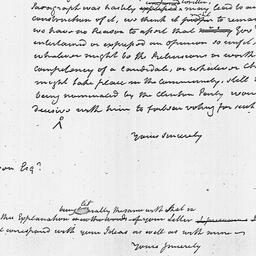 Paragraph was hastily may lead to an
construction of it, we think it proper to remark
we have no Reason to assert that Gov
entertained or expressed an opinion so unfit,
whatever might be the Pretensions or worth
competency of a candidate, or whatever Ch
might take place in the Community, still
being nominated by the Clinton Party would
decisive with him to forbear voting for such
Yours sincerely
Esqr
being literally the same with that in
this Explanation the words of your Letter
correspond with your Ideas as well as with mine—
Yours sincerely